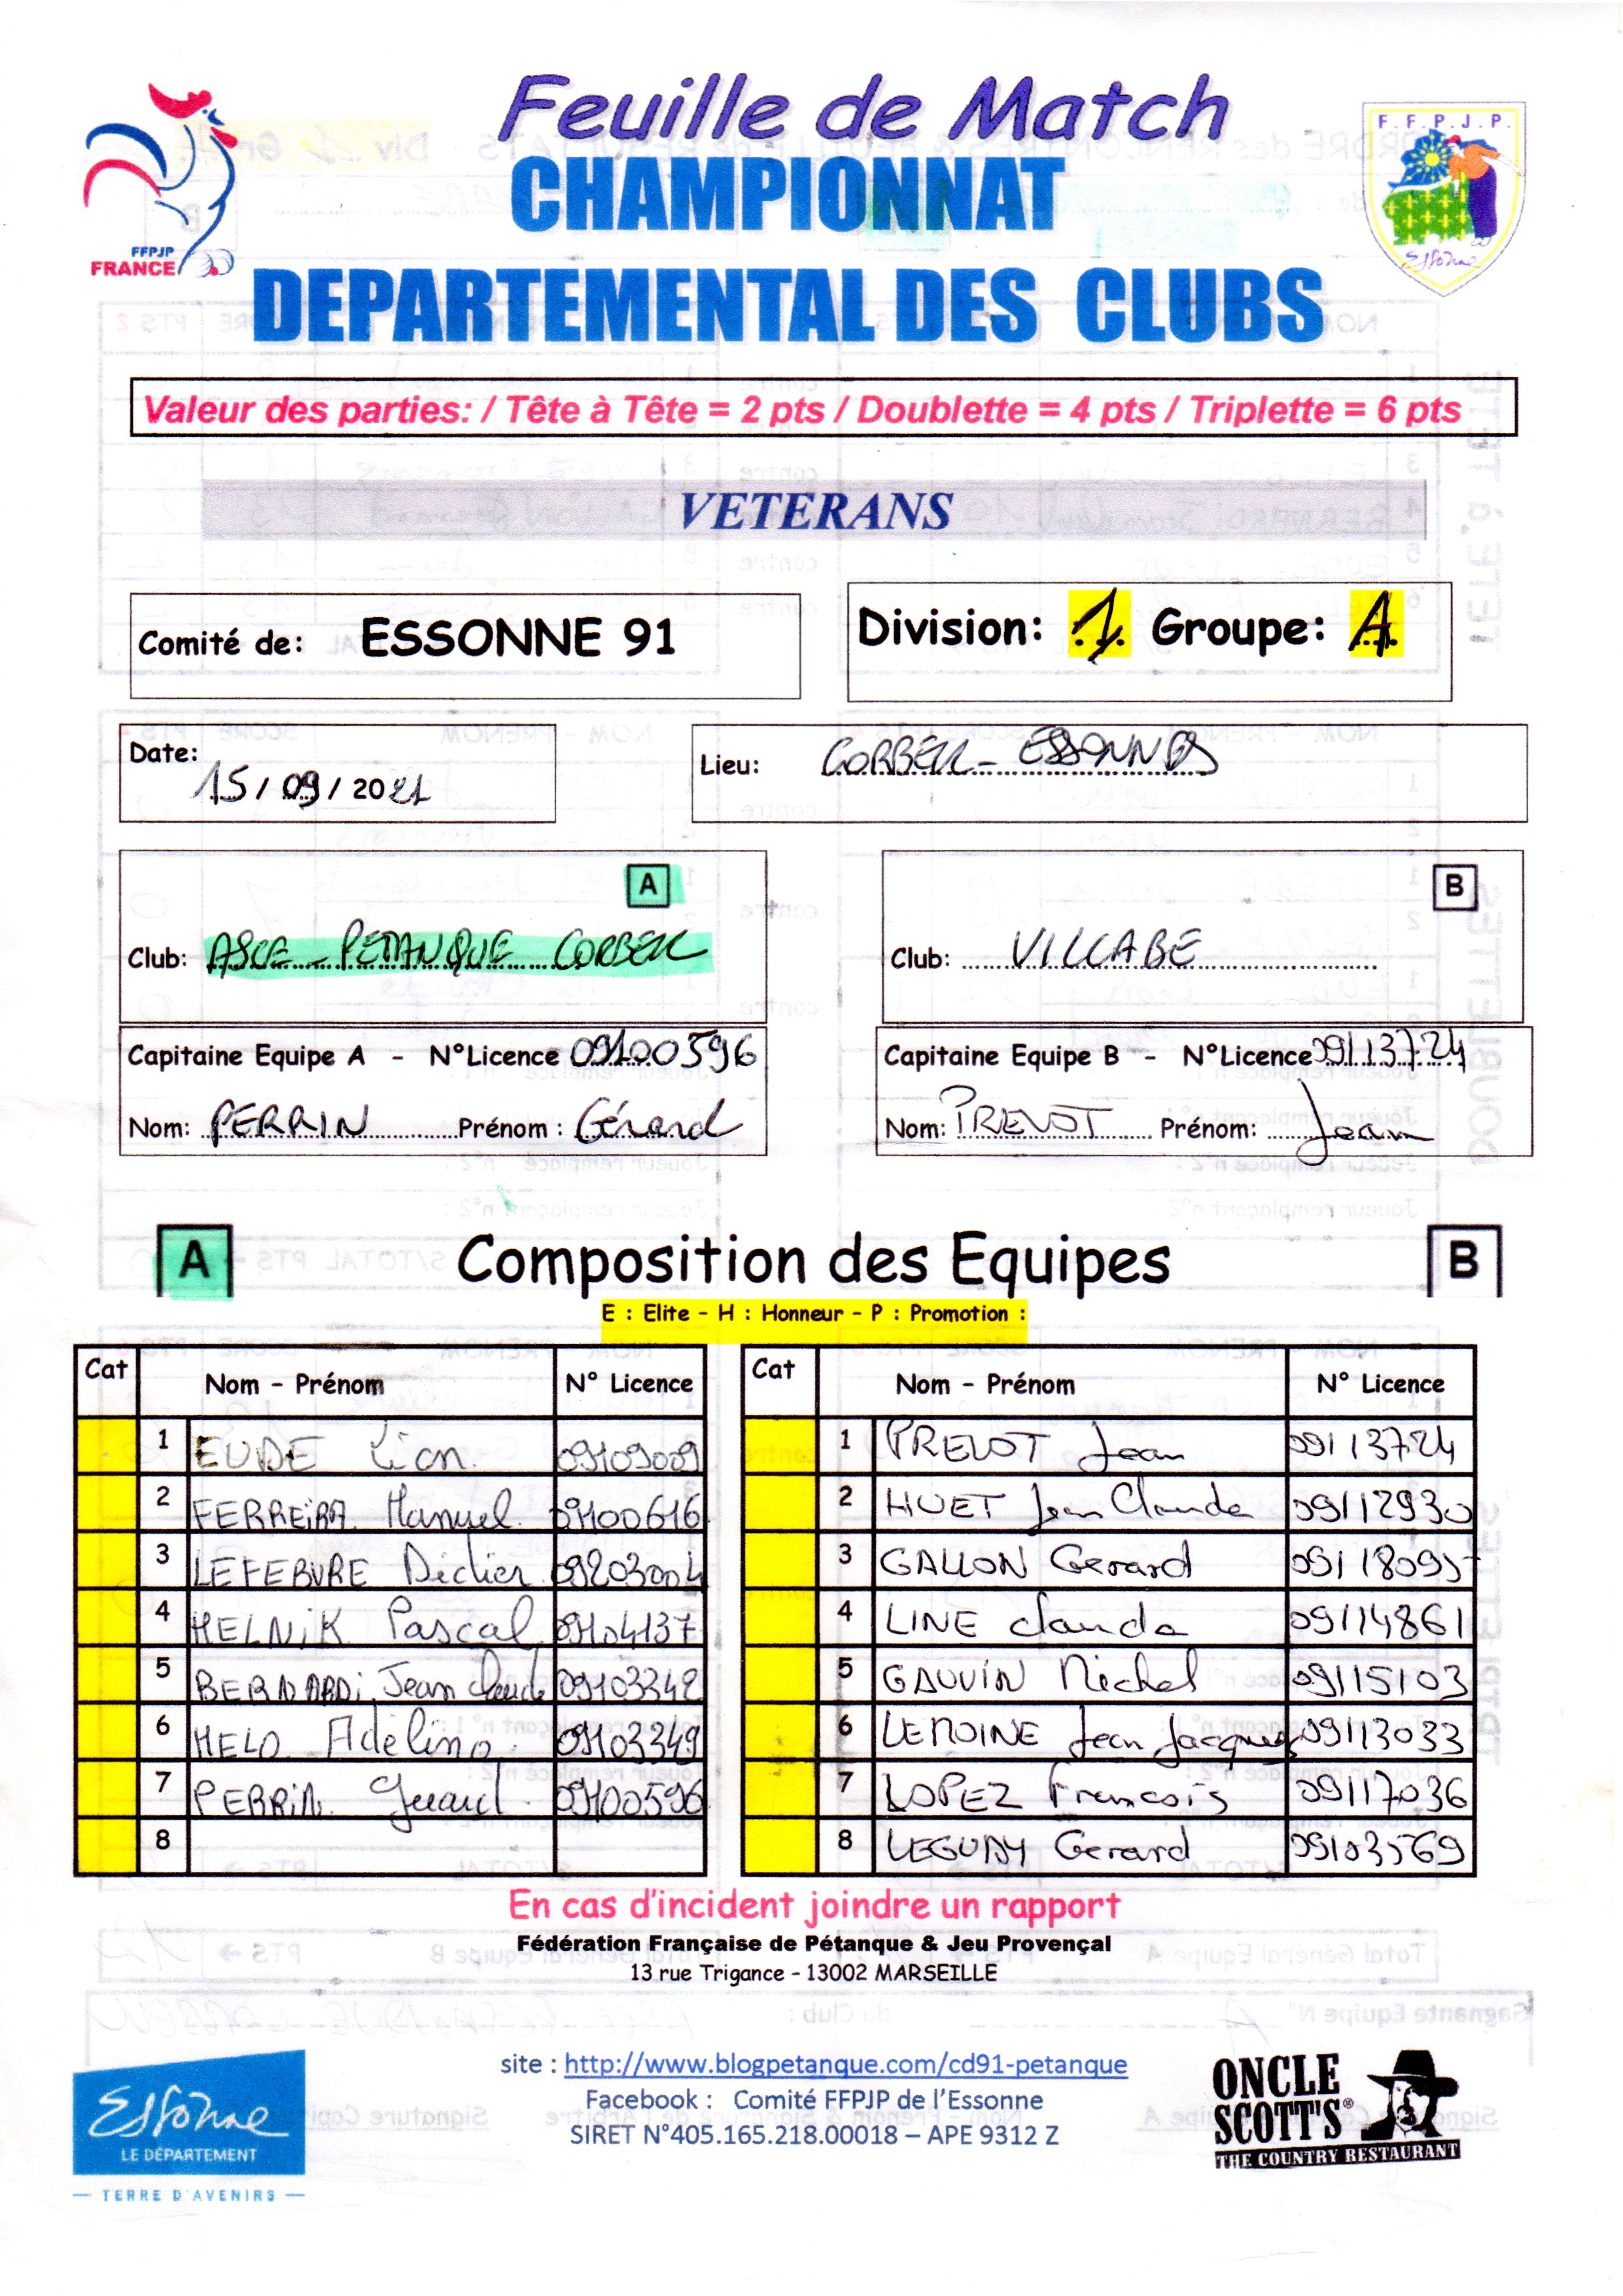 Feuille de Match
CHAMPIONNAT
DEPARTEMENTAL DES CLUBS
FFPJP
FRANCE
F.F.P.J.P.
Essonne
Valeur des parties: / Tête à Tête = 2 pts / Doublette = 4 pts / Triplette = 6 pts
VETERANS
Comité de: ESSONNE 91
Division: 1 Groupe: A
Date: 15 / 09 / 2021
Lieu: CORBEIL - ESSONNES
A
Club: ASCE - PETANQUE CORBEIL
B
Club: VILLABE
Capitaine Equipe A - N°Licence 09100596
Nom: PERRIN Prénom : Gérard
Capitaine Equipe B - N°Licence 09113724
Nom: PREVOT Prénom: Jean
A Composition des Equipes B
E : Elite - H : Honneur - P : Promotion :
Cat Nom - Prénom N° Licence
1 EUDE Lion 09109009
2 FERREIRA Manuel. 09100616
3 LEFEBVRE Didier 09203004
4 MELNIK Pascal 09104137
5 BERNARDi Jean Claude 09103342
6 MELO Adelino. 09103349
7 PERRIN Gerard. 09100596
8
Cat Nom - Prénom N° Licence
1 PREVOT Jean 09113724
2 HUET Jean Claude 09112930
3 GALLON Gerard 09118095
4 LINE claude 09114861
5 GAUVIN Michel 09115103
6 LEMOINE Jean Jacques 09113033
7 LOPEZ Francois 09117036
8 LEGUAY Gerard 09103569
En cas d'incident joindre un rapport
Fédération Française de Pétanque & Jeu Provençal
13 rue Trigance - 13002 MARSEILLE
site : http://www.blogpetanque.com/cd91-petanque
Facebook : Comité FFPJP de l'Essonne
SIRET N°405.165.218.00018 – APE 9312 Z
Essonne
LE DÉPARTEMENT
TERRE D'AVENIRS
ONCLE
SCOTT'S®
THE COUNTRY RESTAURANT